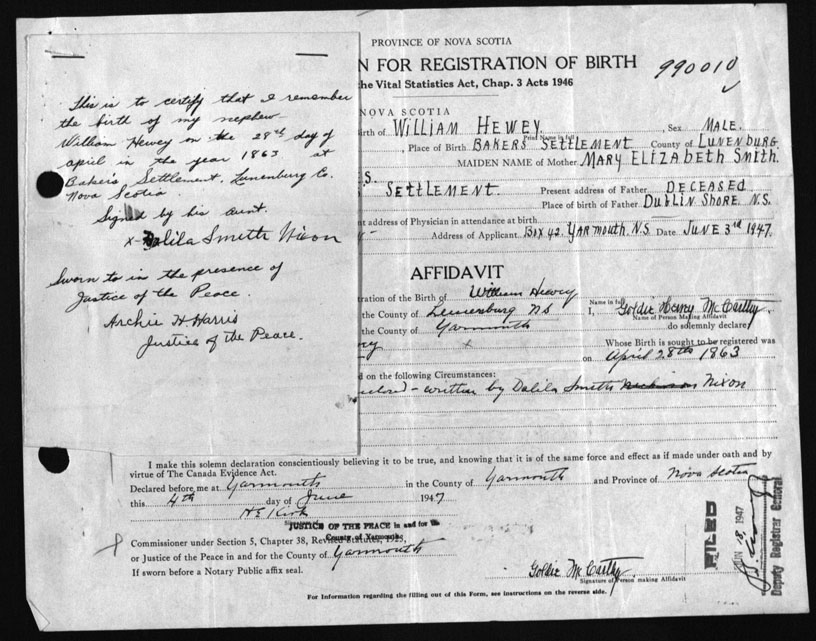 This is to certify that I remember
the birth of my nephew
William Hewey on the 28th day of
april in the year 1863 at
Bakers Settlement, Lunenburg Co.
Nova Scotia.
Signed by his aunt.
x Dalila Smith Nixon
Sworn to in the presence of
Justice of the Peace.
Archie H Harris
Justice of the Peace.
PROVINCE OF NOVA SCOTIA
N FOR REGISTRATION OF BIRTH
990010
the Vital Statistics Act, Chap. 3 Acts 1946
NOVA SCOTIA
Birth of WILLIAM HEWEY. , Sex MALE.
Print Name in full
, Place of Birth BAKERS SETTLEMENT County of LUNENBURG.
MAIDEN NAME of Mother MARY ELIZABETH SMITH.
S.
SETTLEMENT. Present address of Father DECEASED
Place of birth of Father DUBLIN SHORE N.S.
nt address of Physician in attendance at birth
Address of Applicant BOX 42, YARMOUTH, N.S. Date JUNE 3rd 1947.
AFFIDAVIT
tration of the Birth of William Hewey
Name in full
I, Goldie Hewey McCarthy
Name of Person Making Affidavit
the County of Lunenburg NS
do solemnly declare
the County of Yarmouth
Whose Birth is sought to be registered was
x
on April 28th 1863
d on the following Circumstances:
enclosed - written by Dalila Smith Nixon
I make this solemn declaration conscientiously believing it to be true, and knowing that it is of the same force and effect as if made under oath and by
virtue of The Canada Evidence Act.
Declared before me at Yarmouth in the County of Yarmouth and Province of Nova Scotia
this 4th day of June 1947
JUSTICE OF THE PEACE in and for the
County of Yarmouth
Commissioner under Section 5, Chapter 38, Revised Statutes, 1923
or Justice of the Peace in and for the County of Yarmouth
If sworn before a Notary Public affix seal.
Goldie McCarthy.
Signature of Person making Affidavit
FILED
JUN 1947
Deputy Registrar General
For Information regarding the filling out of this Form, see instructions on the reverse side.